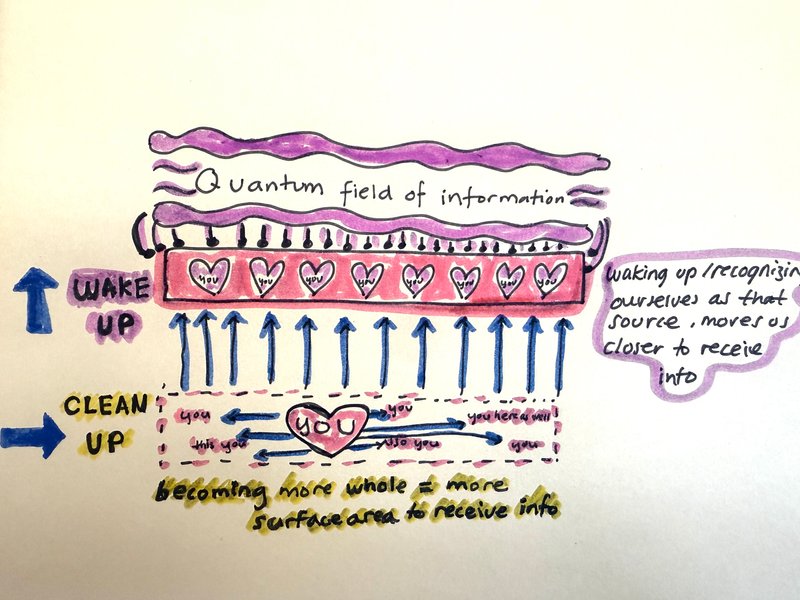 Quantum field of information
you you you you you you you you
WAKE
UP
waking up/recognizin
ourselves as that
source, moves us
closer to receive
info
CLEAN
UP
you
you
YOU
you here as well
this you
also you
you
becoming more whole = more
surface area to receive info